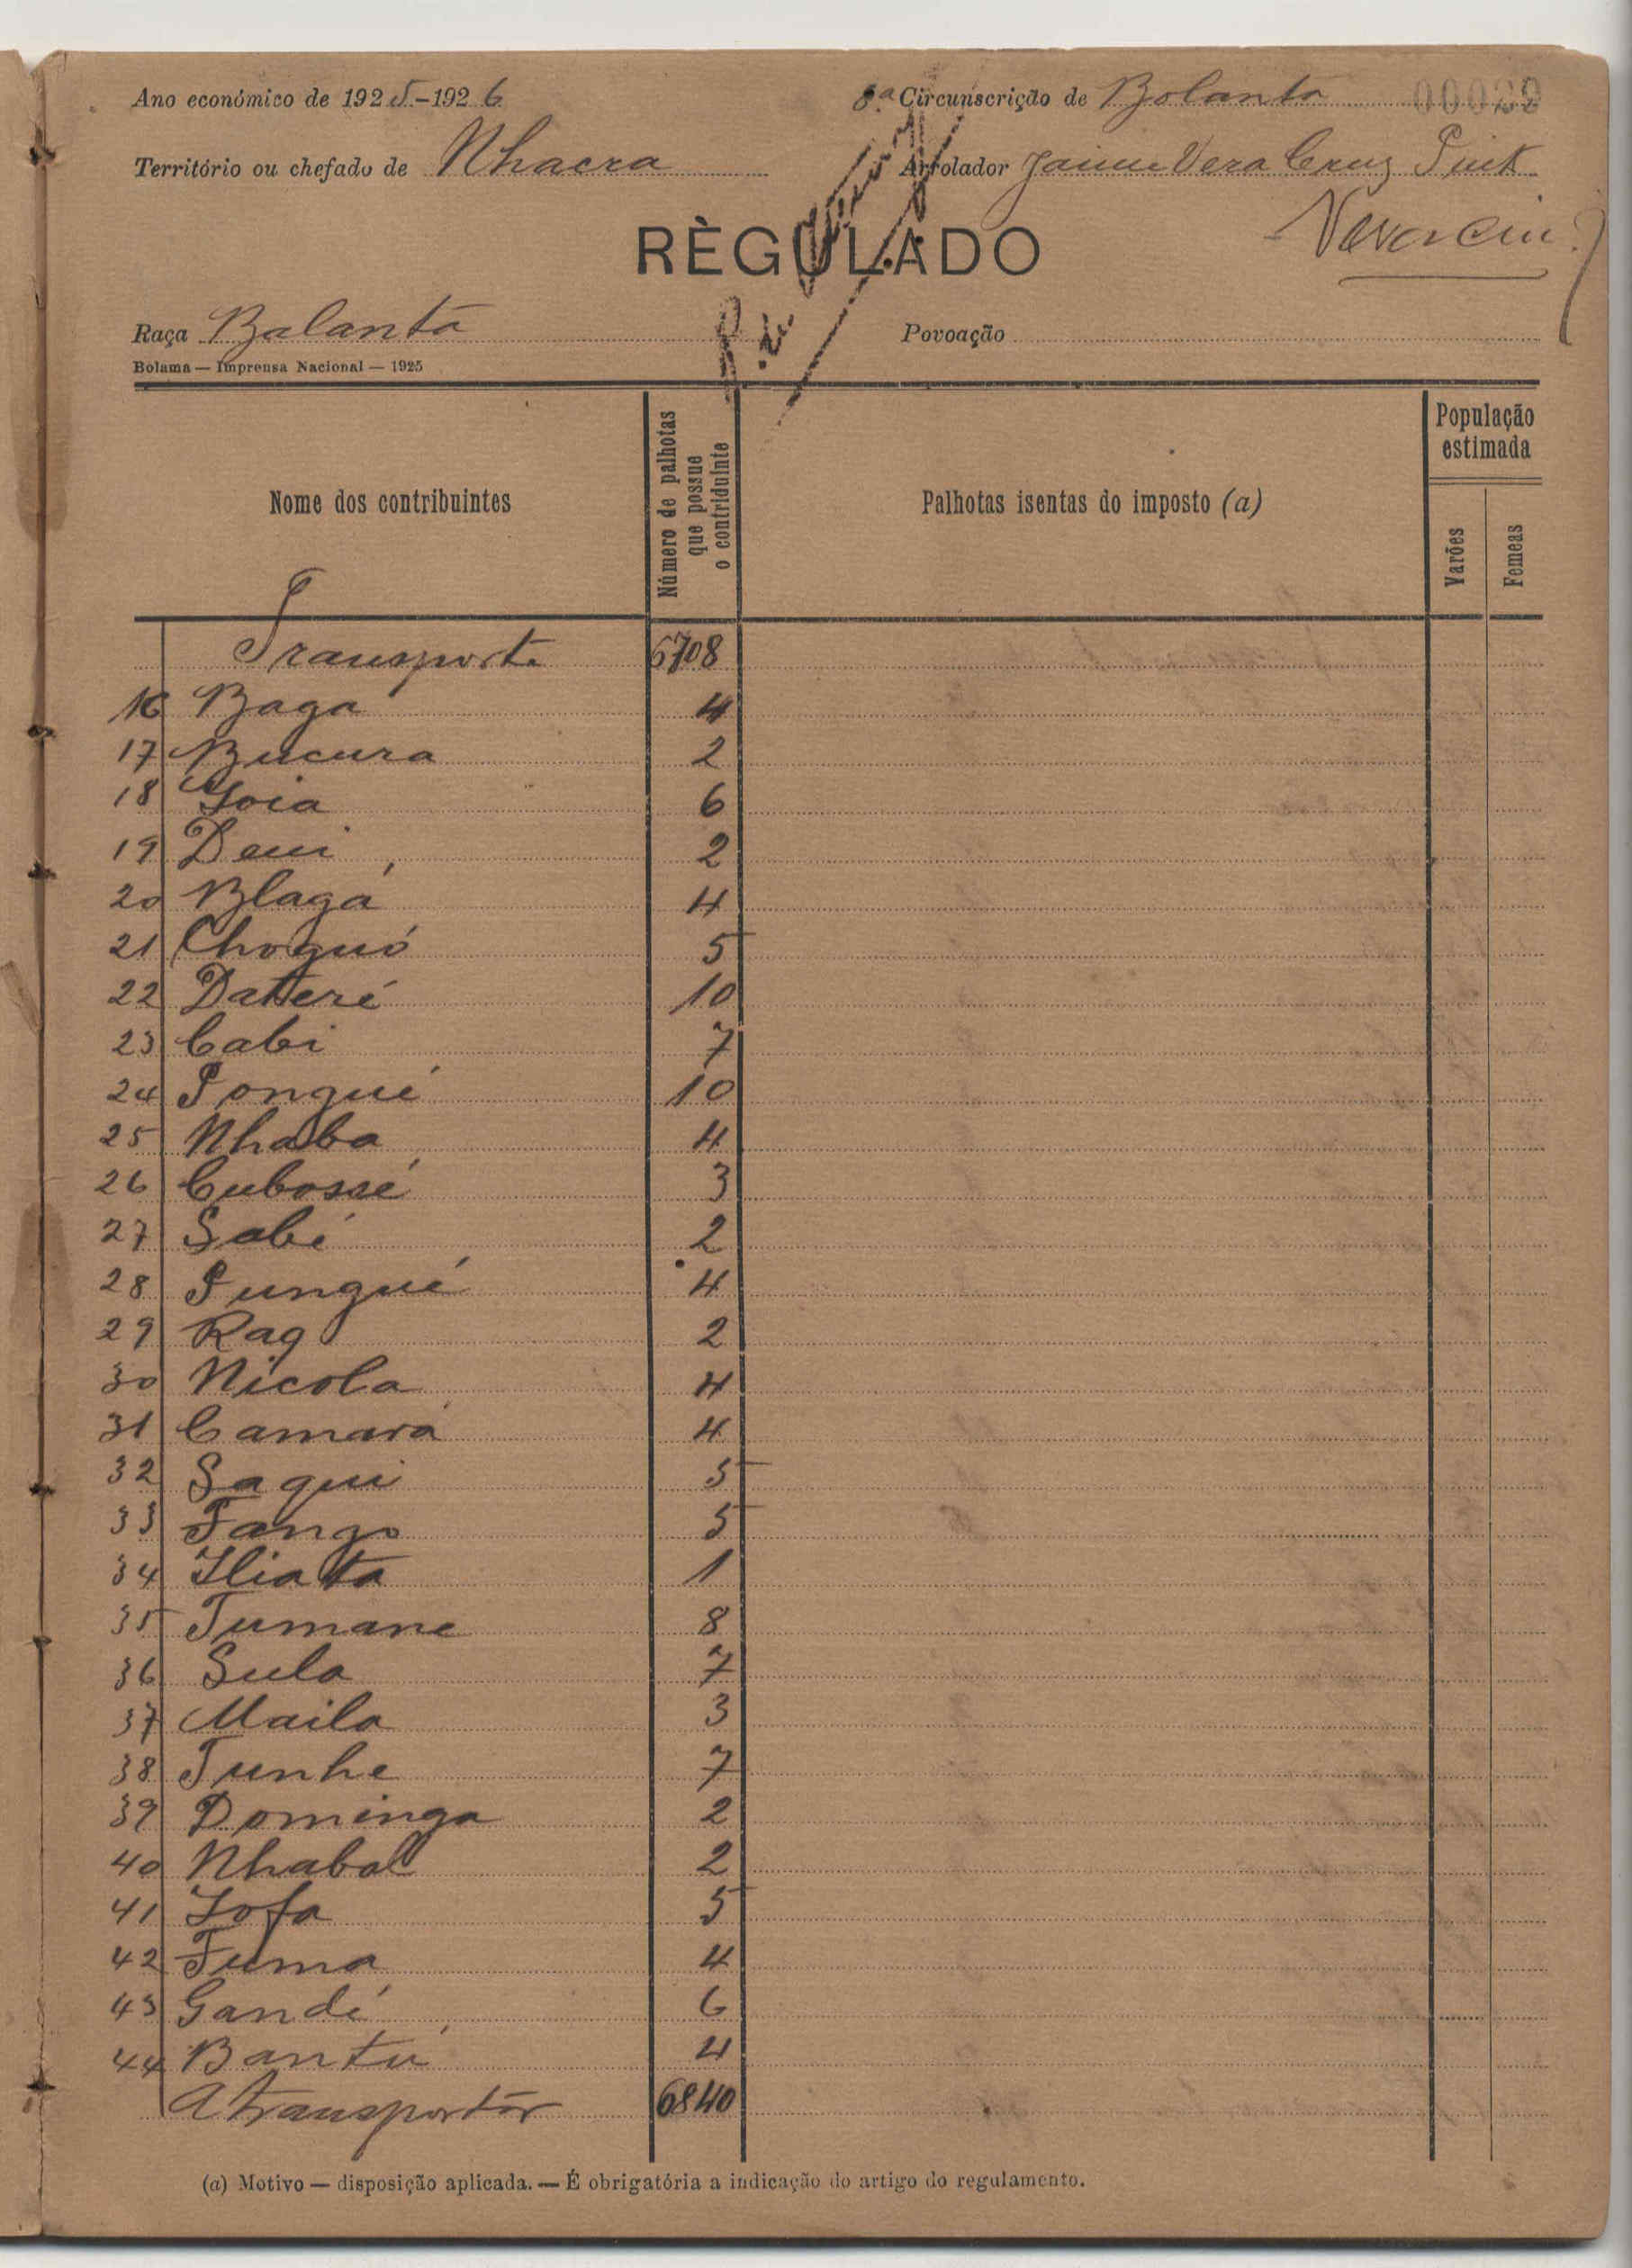 Ano económico de 1925-1926
8.a Circunscrição de Bolanta
Território ou chefado de Nhacra
Arrolador Jaime Vera Cruz
RÈGULADO
Raça Balanta
Povoação
Bolama — Imprensa Nacional — 1925
Nome dos contribuintes
Número de palhotas que possue o contriduinte
Palhotas isentas do imposto (a)
População estimada
Varões
Femeas
Transporte 6708
16 Baga 4
17 Bucura 2
18 Goia 6
19 Deni 2
20 Blagá 4
21 Choguó 5
22 Dateré 10
23 Cabi 7
24 Pongué 10
25 Nhaba 4
26 Cubossé 3
27 Sabé 2
28 Pungué 4
29 Rag 2
30 Nicola 4
31 Camará 4
32 Saqui 5
33 Fango 5
34 Iliata 1
35 Tumane 8
36 Sula 7
37 Maila 3
38 Tunhe 7
39 Dominga 2
40 Nhabal 2
41 Iofa 5
42 Fuma 4
43 Gandé 6
44 Bantú 4
A transportar 6840
(a) Motivo — disposição aplicada. — É obrigatória a indicação do artigo do regulamento.